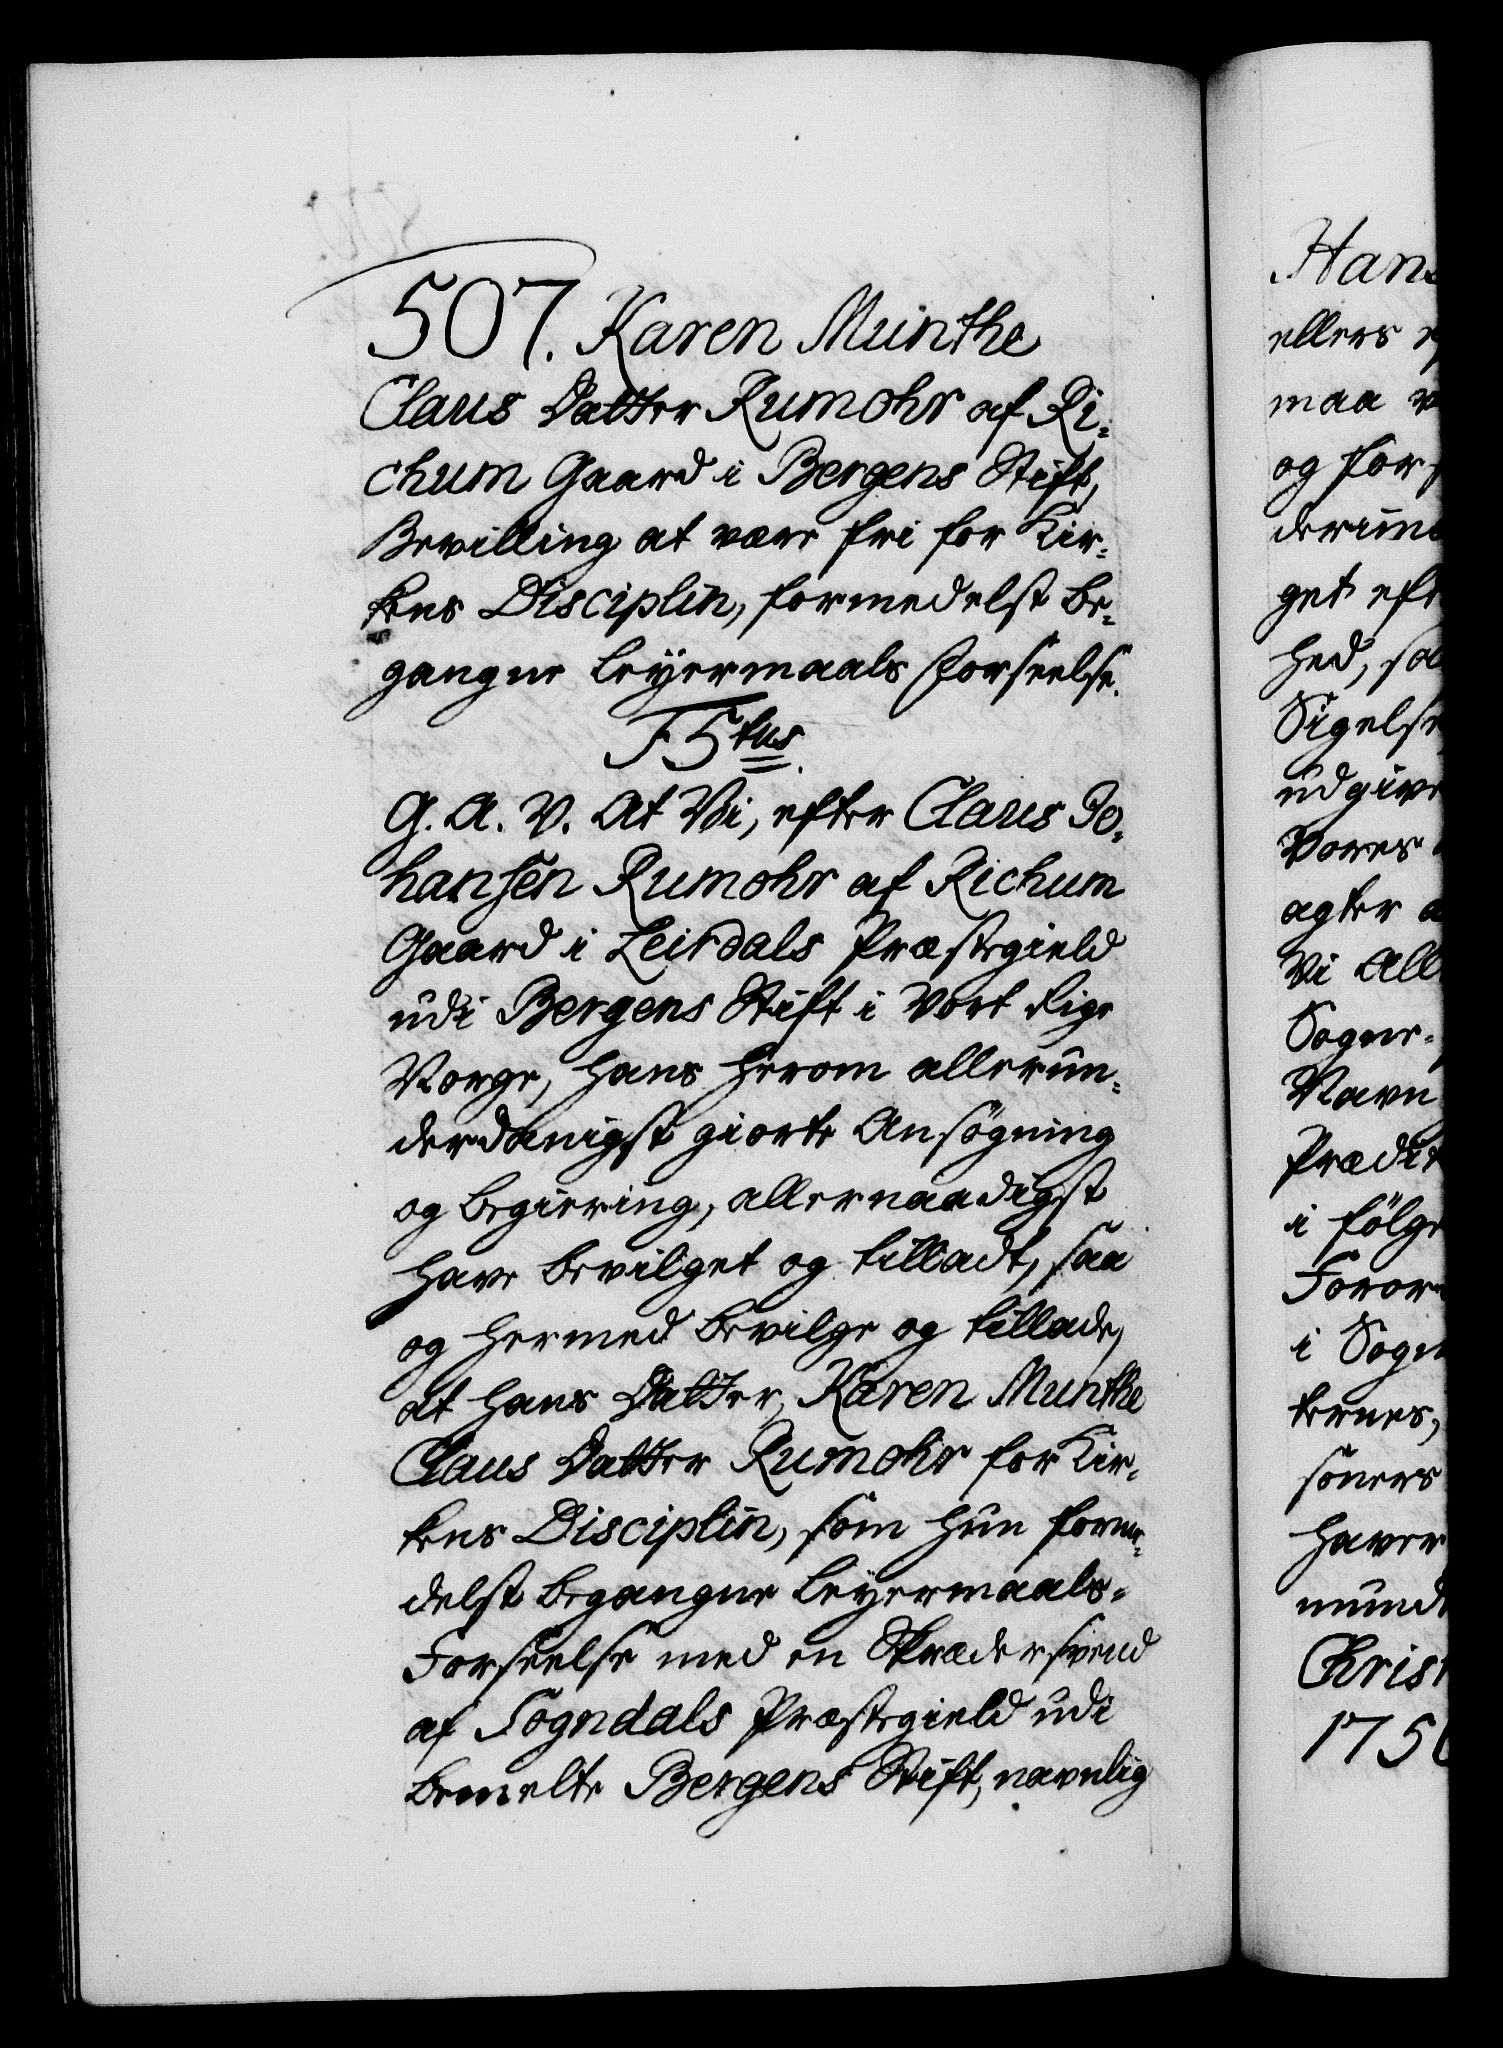 507. Karen Munthe
Claus Datter Rumohr af Ri-
chum Gaard i Bergens Stift,
Bevilling at være fri for Kir-
kens Disciplin, formedelst be-
gangne Leyermaals Forseelse.
F 5tus.
G. A. V. At Vi, efter Claus Jo-
hansen Rumohr af Richum
Gaard i Leirdals Præstegield
udi Bergens Stift i Vort Rige
Norge, hans herom allerun-
derdanigst giorte Ansøgning
og begiering, allernaadigst
have bevilget og tilladt, saa
og hermed bevilge og tillade,
at hans Datter, Karen Munthe
Claus Datter Rumohr for Kir-
kens Disciplin, som hun forme-
delst begangne Leyermaals-
Forseelse med en Skrædersvend
af Sogndals Præstegield udi
bemelte Bergens Stift, navnlig
Hans
ellers
maa
og for
get eft
hed, saa
Sigelse
udgive
Vores
agter
Vi All
Sogne-
Navn
Prædik
i følge
Foror
i Sogn
kernes,
soners
haver
Christ
175